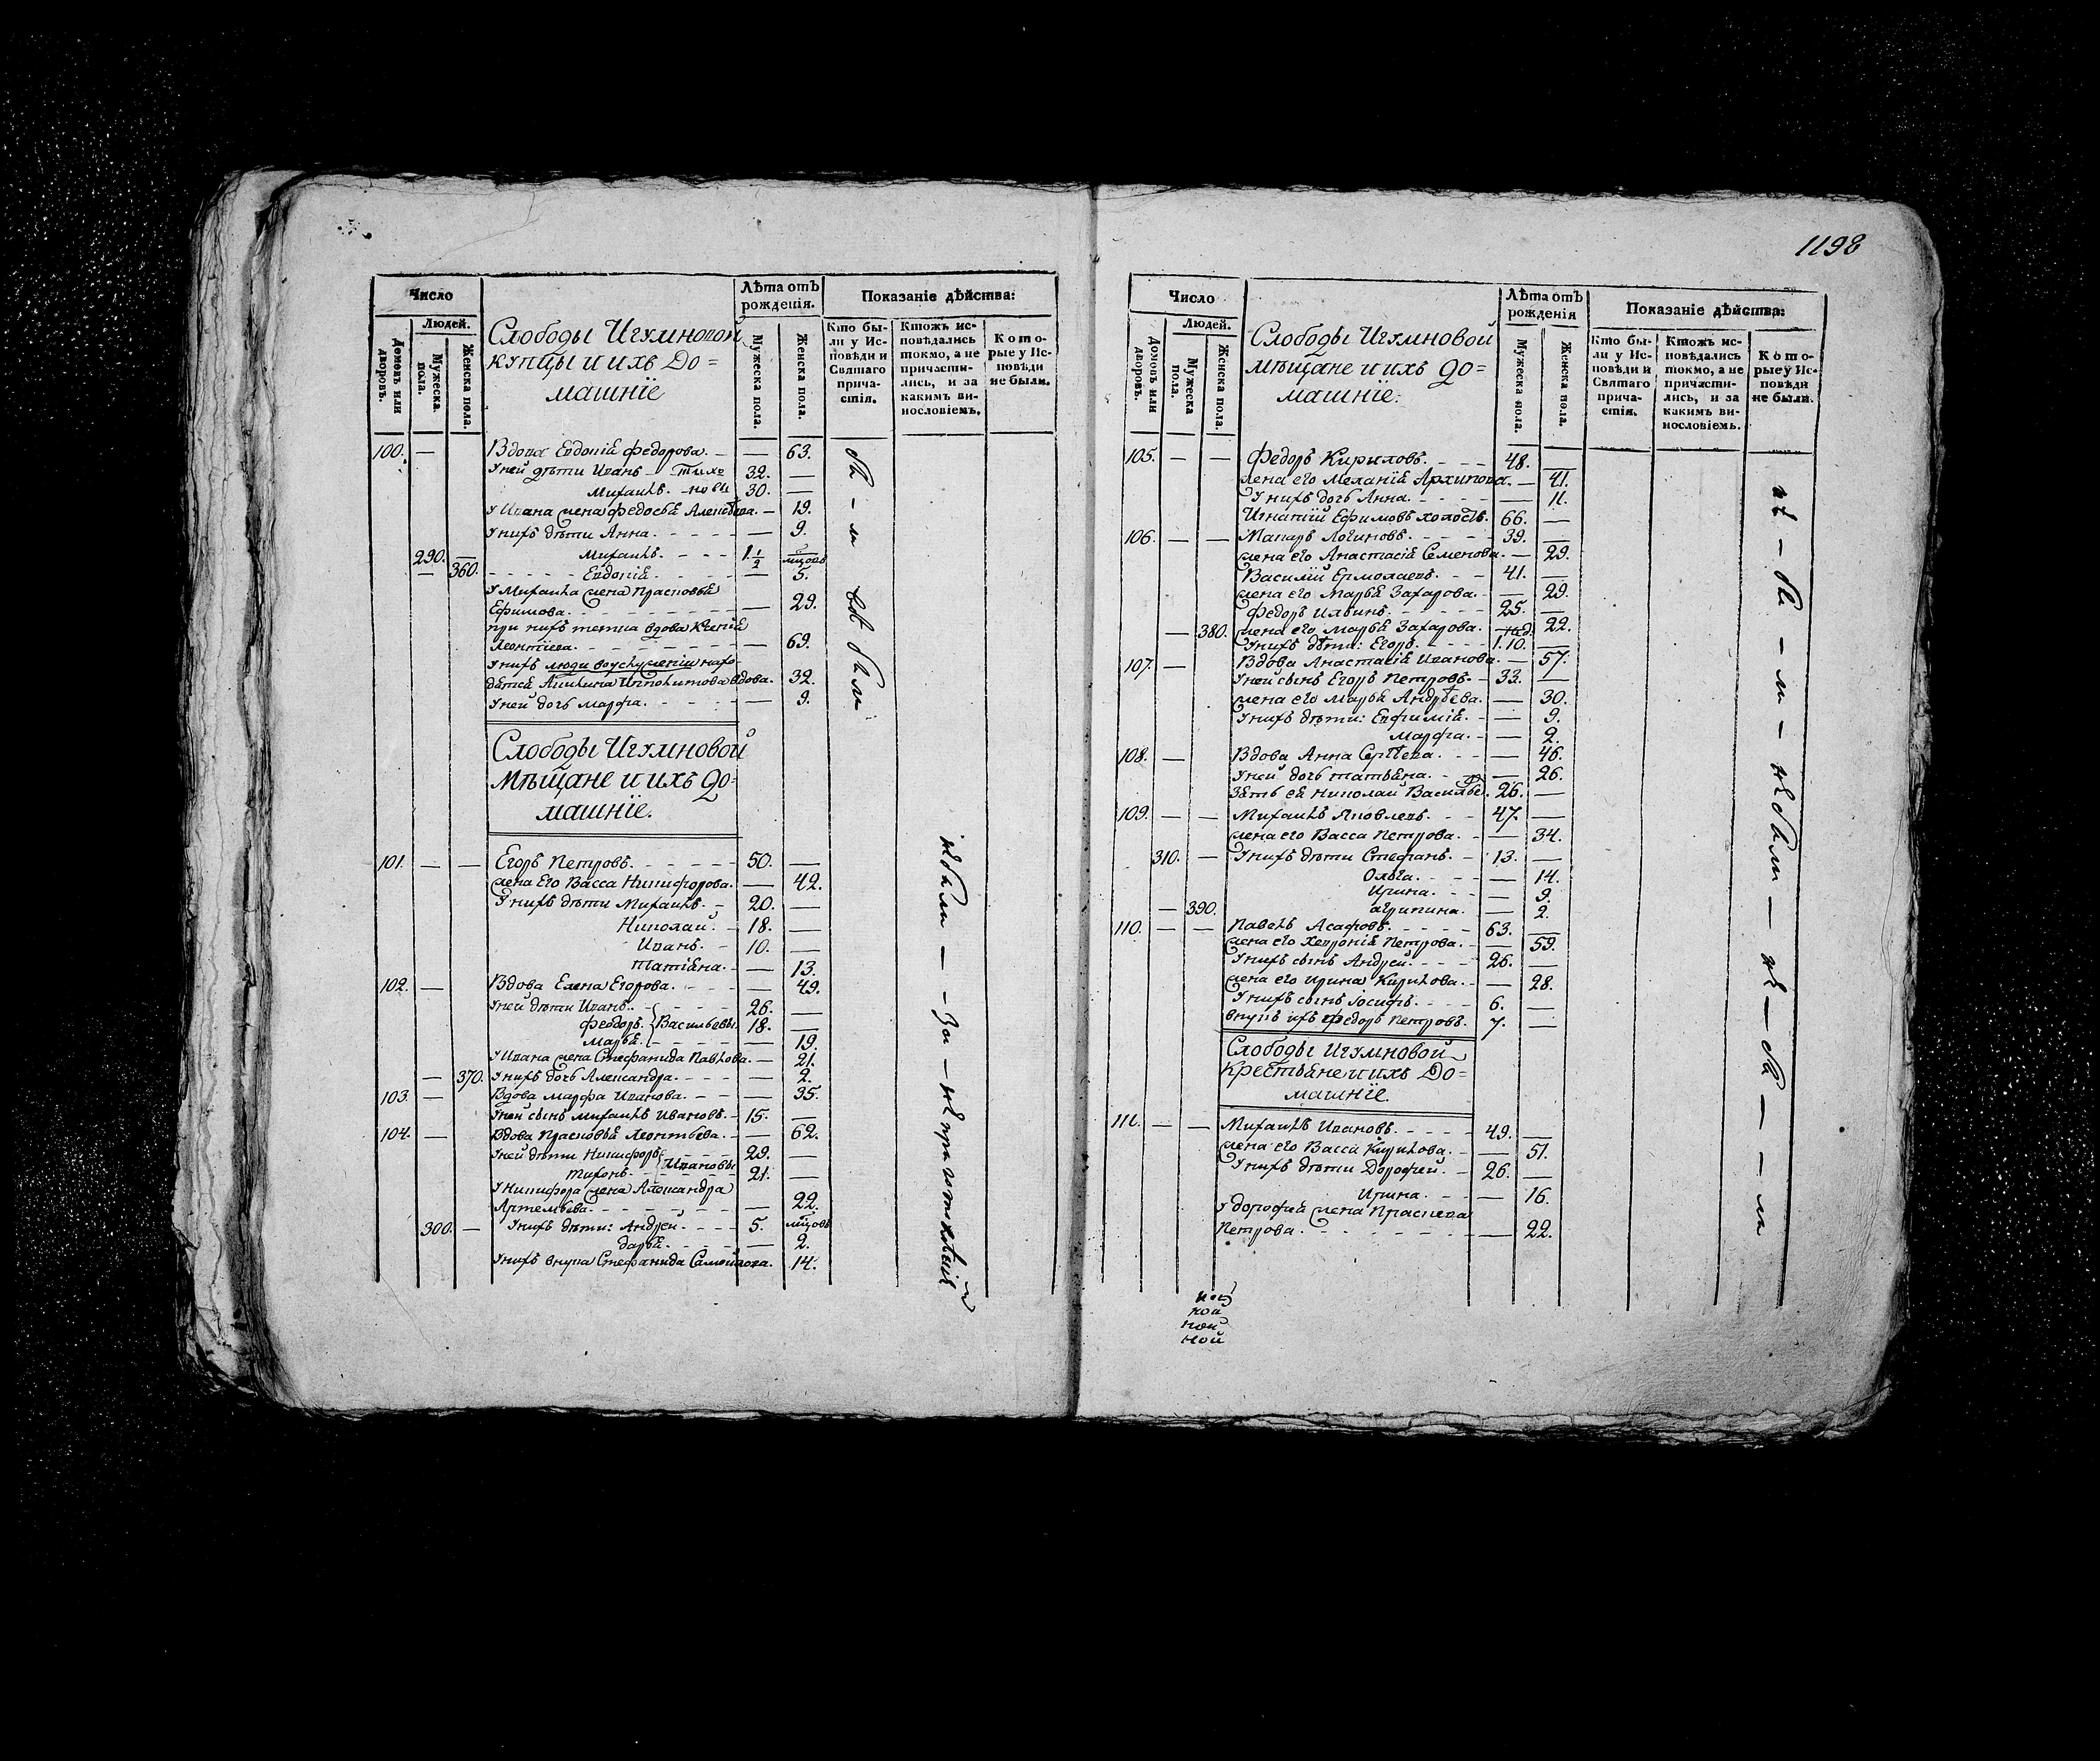 1198
Число
Людей.
Домовъ или дворовъ.
Мужеска пола.
Женска пола.
Слободы Игумновой
купцы и ихъ До=
машніе
Лѣта отъ рожденія.
Мужеска пола.
Женска пола.
Показаніе дѣйства:
Кто бы-
ли у Ис-
повѣди и
Святаго
прича-
стія.
Ктожъ ис-
повѣдались
токмо, а не
причасти-
лись, и за
какимъ ви-
нословіемъ.
Кото-
рые у Ис-
повѣди
не были.
100. — Вдова Евдокія Федорова. — — 63.
У ней дѣти Иванъ — Тихо 32. —
Михаилъ. — новы 30. —
У Ивана жена Федосья Алексѣева. — 19.
У нихъ дѣти Анна. — 9.
290. — Михаилъ. 1 1/2
— 360. Евдокія. — 5.
У Михаила жена Прасковья
Ефимова. — 29.
при нихъ тетка вдова Ксенія
Леонтіева. — 69.
У нихъ люди воуслуженіи нахо-
дятся Акилина Ипполитова вдова. 32.
У ней дочь Марфа. — 9.
были
Слободы Игумновой
Мѣщане и ихъ до=
машніе.
101. — — Егоръ Петровъ. 50. —
жена Его Васса Никифорова. — 42.
У нихъ дѣти Михаилъ. 20. —
Николай. 18. —
Иванъ. 10. —
Татіяна. — 13.
102. — Вдова Елена Егорова. — 49.
У ней дѣти Иванъ. 26. —
Феодоръ. Васильевы. 18. —
Марья. — 19.
У Ивана жена Стефанида Павлова. — 21.
— 370. У нихъ дочь Александра. — 2.
103. — Вдова Марфа Иванова. — 35.
У ней сынъ Михаилъ Ивановъ. 15. —
104. — Вдова Прасковья Леонтьева. — 62.
У ней дѣти Никифоръ Ивановы 29. —
Тихонъ. 21. —
У Никифора жена Александра
Артемьева. — 22.
300. — У нихъ дѣти: Андрей. 5.
Дарья. — 2.
У нихъ внука Стефанида Самойлова. 14.
не были — — за — не
Число
Людей.
Домовъ или дворовъ.
Мужеска пола.
Женска пола.
Слободы Игумновой
Мѣщане и ихъ до=
машніе.
Лѣта отъ рожденія
Мужеска пола.
Женска пола.
Показаніе дѣйства:
Кто бы-
ли у Ис-
повѣди и
Святаго
прича-
стія.
Ктожъ ис-
повѣдались
токмо, а не
причасти-
лись, и за
какимъ ви-
нословіемъ.
Кото-
рые у Ис-
повѣди
не были.
105. — — Федоръ Кириловъ. 48. —
жена его Меланія Архипова. — 41.
У нихъ дочь Анна. — 11.
Игнатій Ефимовъ холостъ. 66. —
106. — — Макаръ Логиновъ. 39. —
жена его Анастасія Семенова. — 29.
Василій Ермолаевъ. 41. —
жена его Марья Захарова. — 29.
Федоръ Ильинъ. 25. —
— 380. жена его Марья Захарова. 22.
У нихъ дѣти: Егоръ. нед. 1.10. —
107. — Вдова Анастасія Иванова. — 57.
У ней сынъ Егоръ Петровъ. 33. —
жена его Марья Андрѣева. — 30.
У нихъ дѣти: Евфимія. — 9.
Марфа. — 2.
108. — Вдова Анна Сергѣева. — 46.
У ней дочь Татьяна. — 26.
Зять ея Николай Василье. 26. —
109. — — Михаилъ Яковлевъ. 47. —
жена его Васса Петрова. — 34.
310. — У нихъ дѣти Стефанъ. 13. —
Ольга. — 14.
Ирина. — 9.
— 390. Агрипина. — 2.
110. — — Павелъ Асафовъ. 63. —
жена его Хевронія Петрова. — 59.
У нихъ сынъ Андрей. 26. —
жена его Ирина Кирилова. — 28.
У нихъ сынъ Іосифъ. 6. —
внукъ ихъ Федоръ Петровъ. 7. —
Слободы Игумновой
Крестьяне и ихъ До=
машніе.
111. — — Михаилъ Ивановъ. 49. —
жена его Васса Кирилова. — 51.
У нихъ дѣти Дорофей. 26. —
Ирина. — 16.
У Дорофея жена Праскева
Петрова. — 22.
не — бы — ли — не были — не — бы — — ли
ной